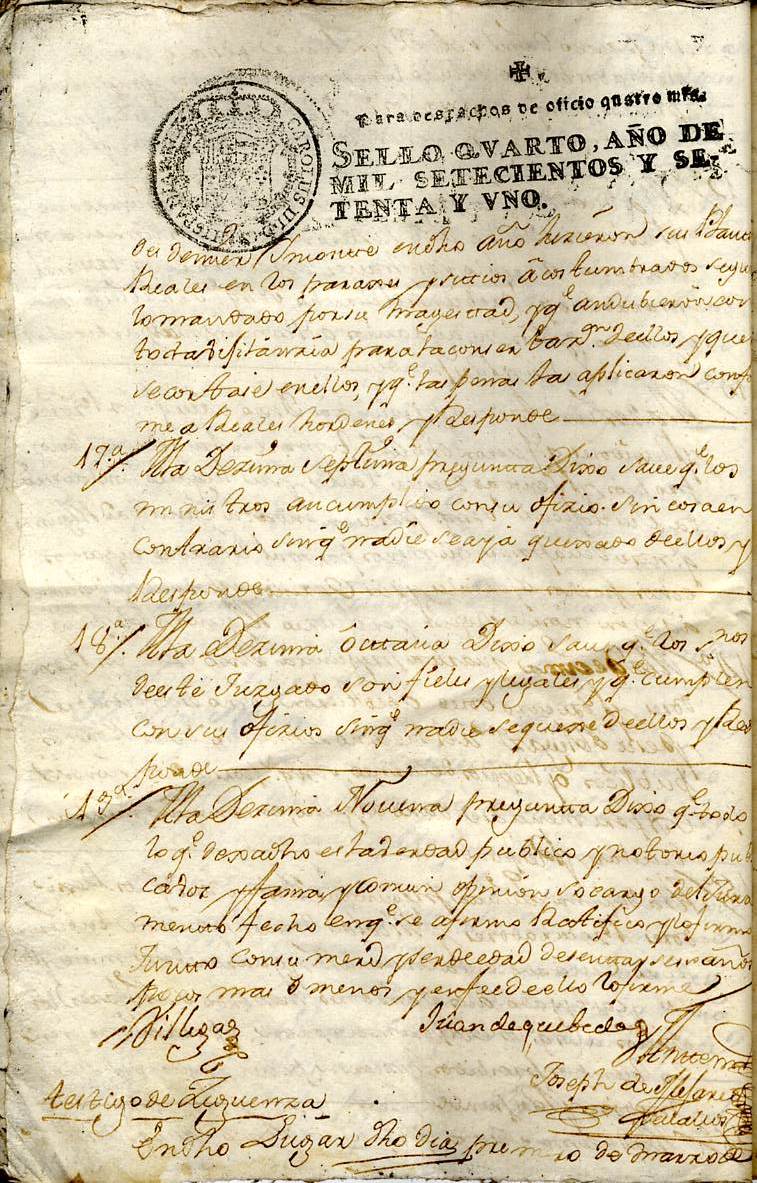 ✠
Para despachos de oficio quatro mrs.
SELLO QVARTO, AÑO DE
MIL SETECIENTOS Y SE-
TENTA Y VNO.
CAROLUS III D G HISPANIAR REX
en dho año hizieron sus
Reales en los parajes y sitios acostumbrados segun
lo mandado por su Magestad, y qe. andubieron con
toda para la conserbazn. de ellos y que
se cortase en ellos, y qe. las penas las aplicaron confor
me a Reales hordenes, y Responde
17.a A la Dezima Septima pregunta Dixo save qe. los
ministros an cumplido con su ofizio sin cosa en
contrario sin qe. nadie se aya quexado de ellos y
Responde
18.a A la Dezima Octava Dixo save qe. los
de este Juzgado son fieles y legales y qe. cumplen
con sus ofizios sin qe. nadie se quexe de ellos y Res
ponde
19.a A la Dezima Novena pregunta Dixo qe. todo
lo qe. dexa dho es la verdad publico y notorio publi
ca voz y fama y comun opinion so cargo del Jura
mento fecho en qe. se afirmo Ratifico y lo firmo
Junto con su merd. y ser de edad de sesenta y seis años
poco mas o menos y en fee de ello lo firme
Villegas
Juan de quebedo
Ante mi
Joseph de
Zevallos
testigo de Ziguenza
En dho Lugar dho dia primero de Marzo de